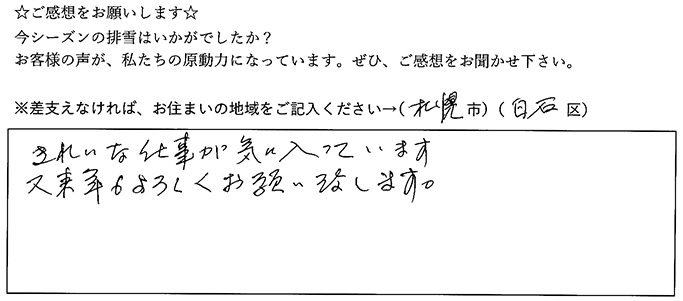 ☆ご感想をお願いします☆
今シーズンの排雪はいかがでしたか？
お客様の声が、私たちの原動力になっています。ぜひ、ご感想をお聞かせ下さい。
※差支えなければ、お住まいの地域をご記入ください→(札幌市)(白石区)
きれいな仕事が気に入っています
又来年もよろしくお願い致します。